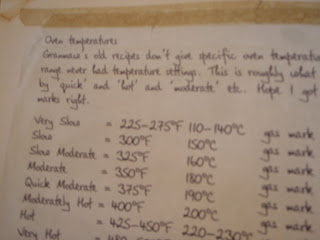 Oven temperatures
Grannaw's old recipes don't give specific oven temperatu
range never had temperature settings. This is roughly what
by quick' and 'hot' and 'moderate' etc. Hope I got
marks right.
Very Slow = 225-275°F 110-140°C gas mark
Slow = 300°F 150°C gas mark
Slow Moderate = 325°F 160°C gas mark
Moderate = 350°F 180°C gas mark
Quick Moderate = 375°F 190°C gas mark
Moderately Hot = 400°F 200°C gas mark
Hot = 425-450°F 220-230°C gas mark
Very Hot